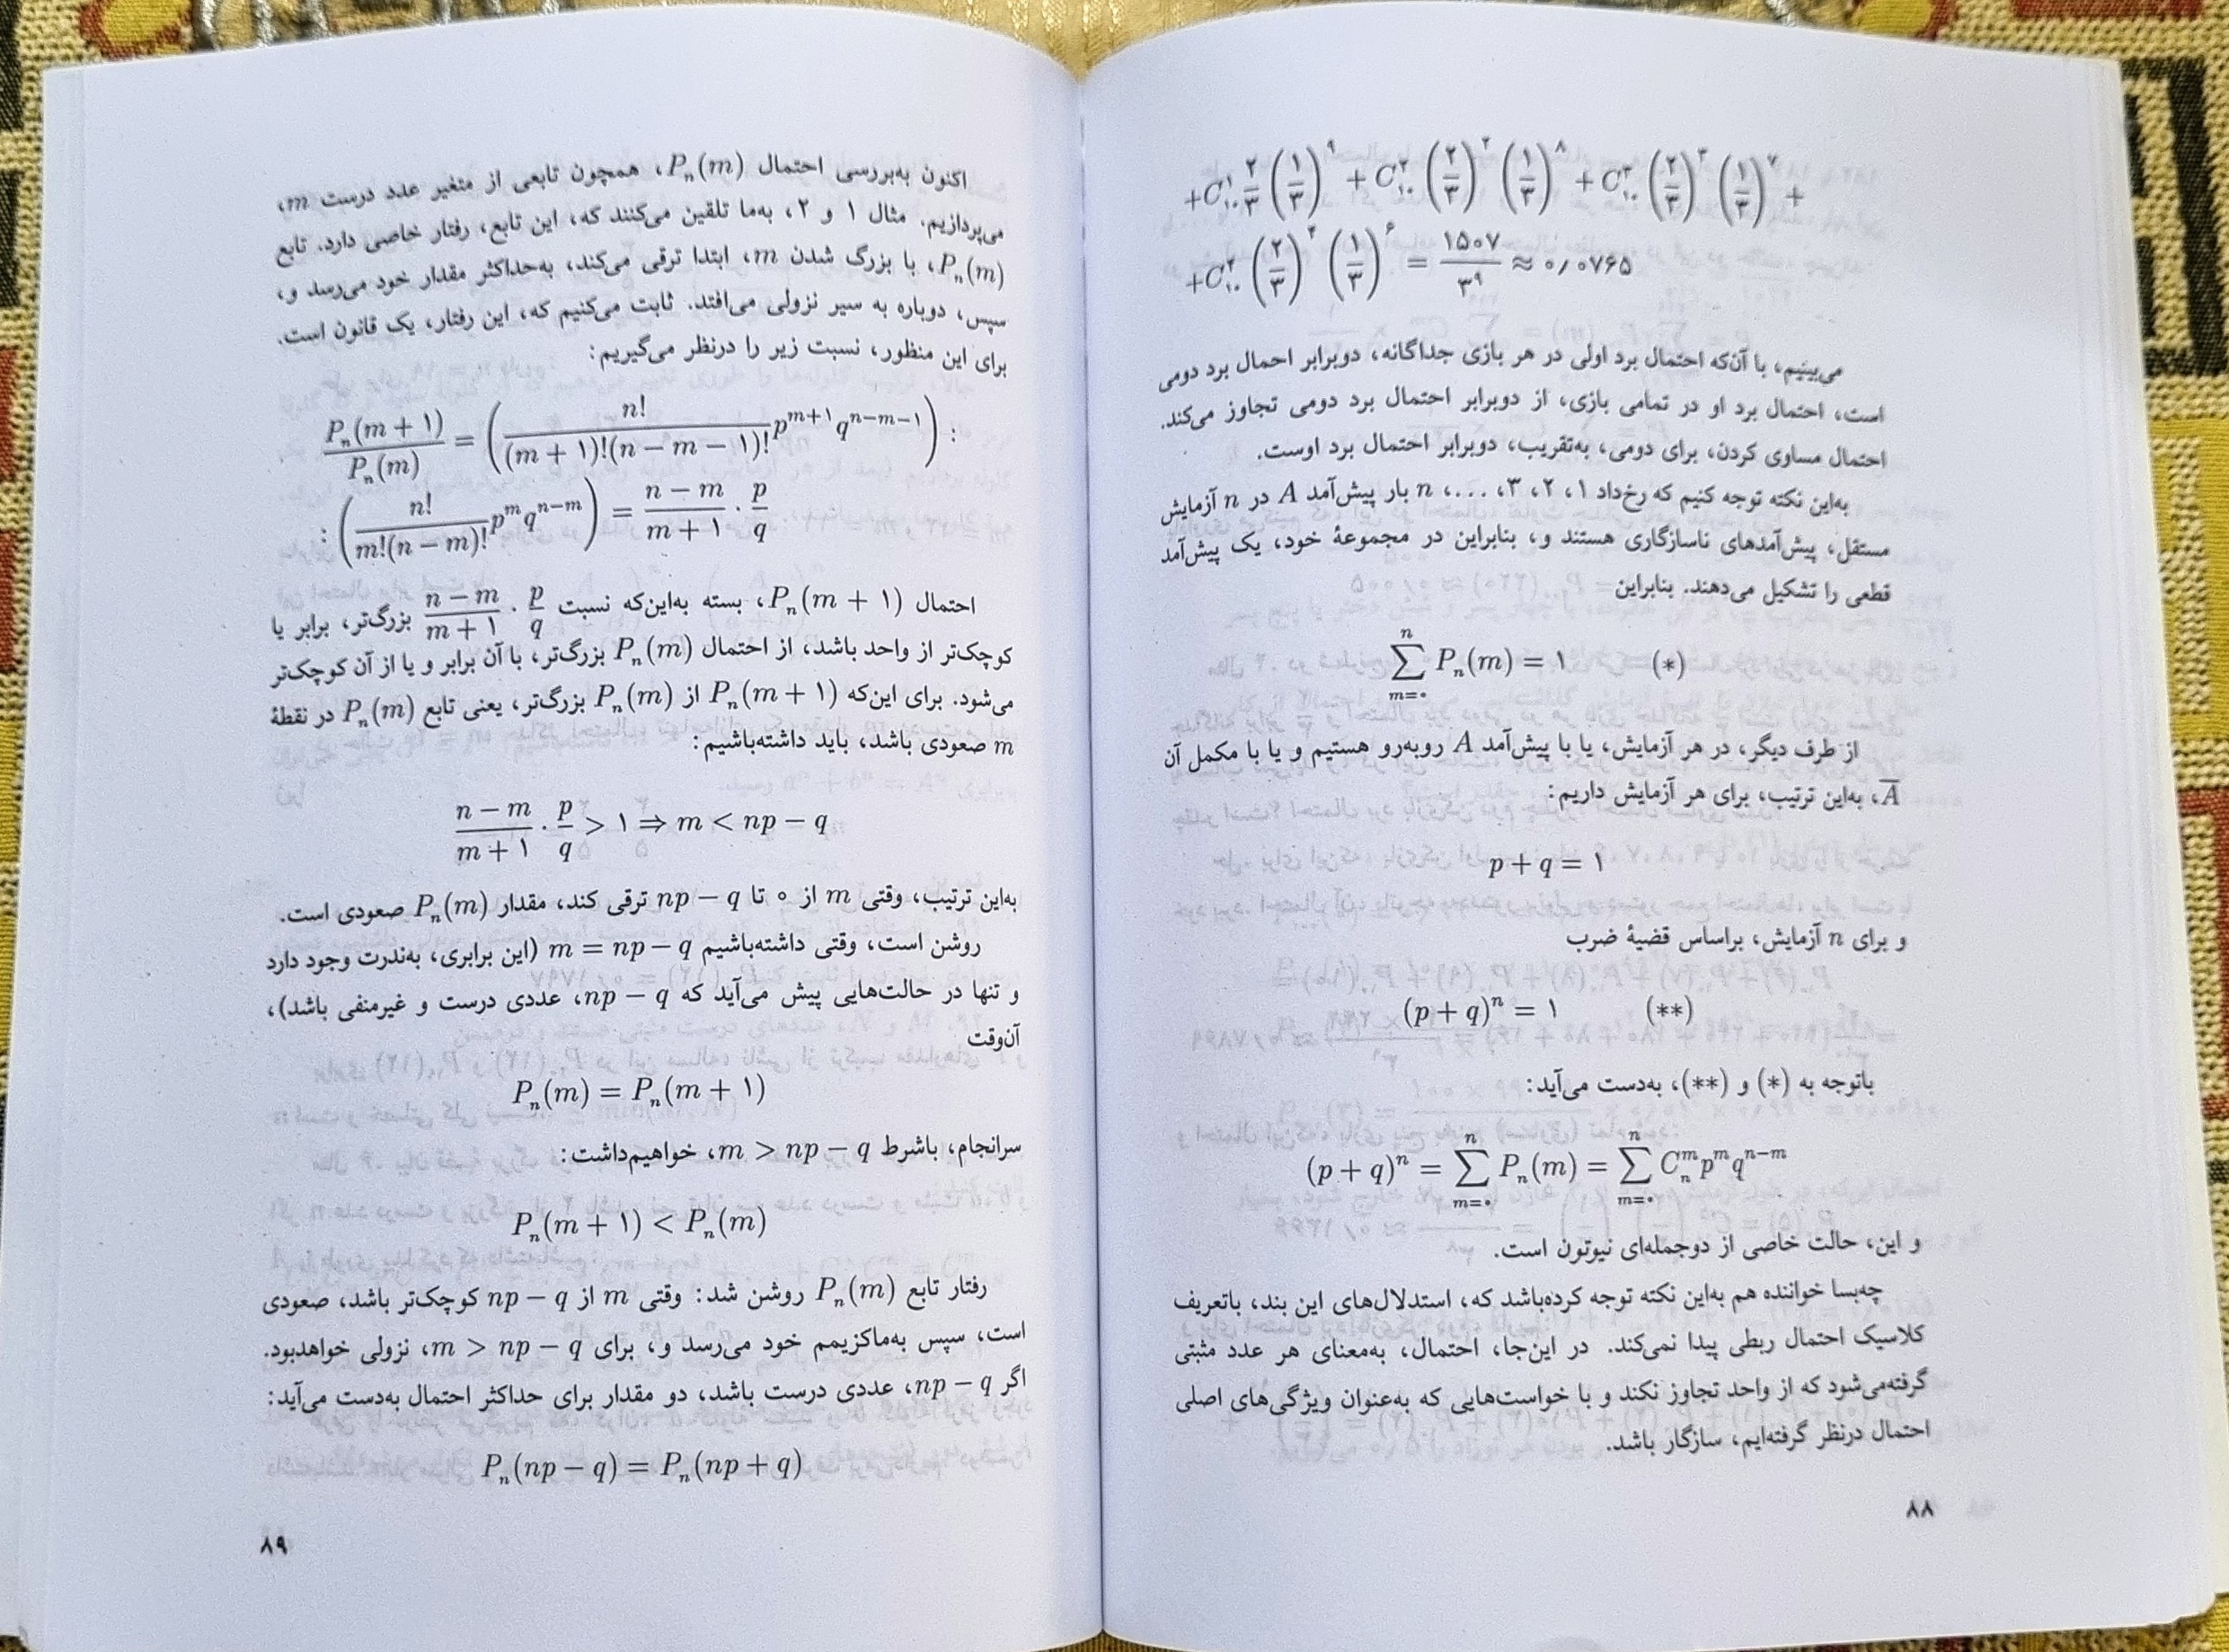 +C₁₀¹ ۲/۳ (۱/۳)^۹ + C₁₀² (۲/۳)^۲ (۱/۳)^۸ + C₁₀³ (۲/۳)^۳ (۱/۳)^۷ +
+C₁₀⁴ (۲/۳)^۴ (۱/۳)^۶ = ۱۵۰۷/۳^۹ ≈ ۰٫۰۷۶۵
می‌بینیم، با آن‌که احتمال برد اولی در هر بازی جداگانه، دوبرابر احمال برد دومی
است، احتمال برد او در تمامی بازی، از دوبرابر احتمال برد دومی تجاوز می‌کند.
احتمال مساوی کردن، برای دومی، به‌تقریب، دوبرابر احتمال برد اوست.
به‌این نکته توجه کنیم که رخ‌داد ۱، ۲، ۳، ...، n بار پیش‌آمد A در n آزمایش
مستقل، پیش‌آمدهای ناسازگاری هستند و، بنابراین در مجموعهٔ خود، یک پیش‌آمد
قطعی را تشکیل می‌دهند. بنابراین
∑_{m=۰}^{n} Pₙ(m) = ۱ (*)
از طرف دیگر، در هر آزمایش، یا با پیش‌آمد A روبه‌رو هستیم و یا با مکمل آن
A̅، به‌این ترتیب، برای هر آزمایش داریم:
p + q = ۱
و برای n آزمایش، براساس قضیهٔ ضرب
(p + q)^n = ۱ (**)
باتوجه به (*) و (**)، به‌دست می‌آید:
(p + q)^n = ∑_{m=۰}^{n} Pₙ(m) = ∑_{m=۰}^{n} Cₙ^m p^m q^{n−m}
و این، حالت خاصی از دوجمله‌ای نیوتون است.
چه‌بسا خواننده هم به‌این نکته توجه کرده‌باشد که، استدلال‌های این بند، باتعریف
کلاسیک احتمال ربطی پیدا نمی‌کند. در این‌جا، احتمال، به‌معنای هر عدد مثبتی
گرفته‌می‌شود که از واحد تجاوز نکند و با خواست‌هایی که به‌عنوان ویژگی‌های اصلی
احتمال درنظر گرفته‌ایم، سازگار باشد.
۸۸
اکنون به‌بررسی احتمال Pₙ(m)، همچون تابعی از متغیر عدد درست m،
می‌پردازیم. مثال ۱ و ۲، به‌ما تلقین می‌کنند که، این تابع، رفتار خاصی دارد. تابع
Pₙ(m)، با بزرگ شدن m، ابتدا ترقی می‌کند، به‌حداکثر مقدار خود می‌رسد و،
سپس، دوباره به سیر نزولی می‌افتد. ثابت می‌کنیم که، این رفتار، یک قانون است.
برای این منظور، نسبت زیر را درنظر می‌گیریم:
Pₙ(m + ۱)/Pₙ(m) = (n!/((m + ۱)!(n − m − ۱)!) p^{m+۱} q^{n−m−۱}) :
: (n!/(m!(n − m)!) p^m q^{n−m}) = (n − m)/(m + ۱) · p/q
احتمال Pₙ(m + ۱)، بسته به‌این‌که نسبت (n − m)/(m + ۱) · p/q بزرگ‌تر، برابر یا
کوچک‌تر از واحد باشد، از احتمال Pₙ(m) بزرگ‌تر، با آن برابر و یا از آن کوچک‌تر
می‌شود. برای این‌که Pₙ(m + ۱) از Pₙ(m) بزرگ‌تر، یعنی تابع Pₙ(m) در نقطهٔ
m صعودی باشد، باید داشته‌باشیم:
(n − m)/(m + ۱) · p/q > ۱ ⇒ m < np − q
به‌این ترتیب، وقتی m از ۰ تا np − q ترقی کند، مقدار Pₙ(m) صعودی است.
روشن است، وقتی داشته‌باشیم m = np − q (این برابری، به‌ندرت وجود دارد
و تنها در حالت‌هایی پیش می‌آید که np − q، عددی درست و غیرمنفی باشد)،
آن‌وقت
Pₙ(m) = Pₙ(m + ۱)
سرانجام، باشرط m > np − q، خواهیم‌داشت:
Pₙ(m + ۱) < Pₙ(m)
رفتار تابع Pₙ(m) روشن شد: وقتی m از np − q کوچک‌تر باشد، صعودی
است، سپس به‌ماکزیمم خود می‌رسد و، برای m > np − q، نزولی خواهدبود.
اگر np − q، عددی درست باشد، دو مقدار برای حداکثر احتمال به‌دست می‌آید:
Pₙ(np − q) = Pₙ(np + q)
۸۹